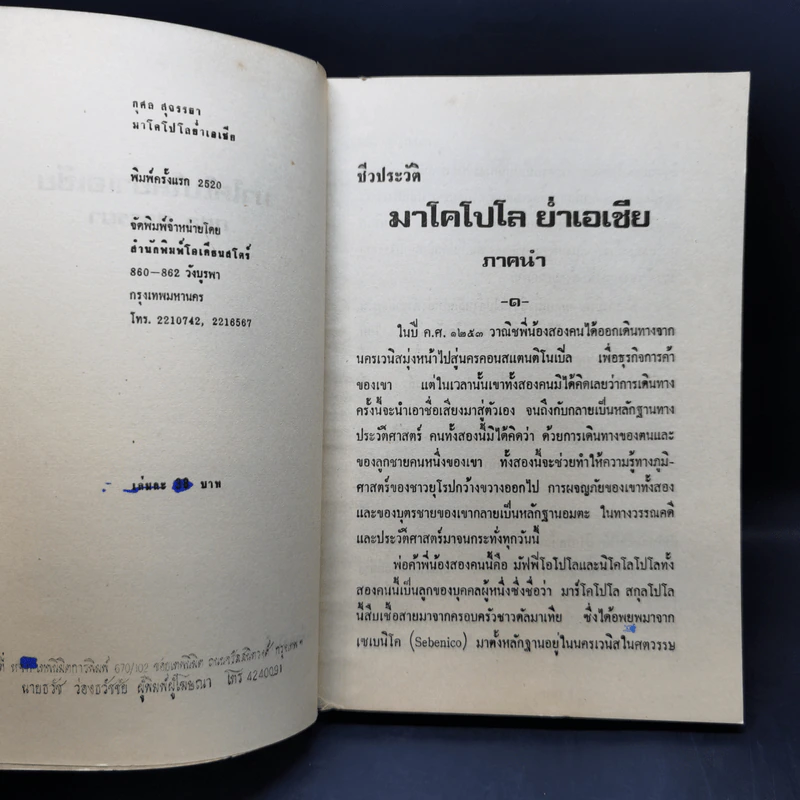 กุศล สุจรรยา
มาโคโปโลย่ำเอเซีย
พิมพ์ครั้งแรก 2520
จัดพิมพ์จำหน่ายโดย
สำนักพิมพ์โอเดียนสโตร์
860—862 วังบูรพา
กรุงเทพมหานคร
โทร. 2210742, 2216567
เล่มละ บาท
เทคนิคการพิมพ์ 670/102 ถนนจรัลสนิทวงศ์ กรุงเทพฯ
นายธวัช ว่องธวัชชัย ผู้พิมพ์ผู้โฆษณา โทร 4240091
ชีวประวัติ
มาโคโปโล ย่ำเอเซีย
ภาคนำ
-๑-
ในปี ค.ศ. ๑๒๕๓ วาณิชพี่น้องสองคนได้ออกเดินทางจาก
นครเวนิสมุ่งหน้าไปสู่นครคอนสแตนติโนเปิ้ล เพื่อธุรกิจการค้า
ของเขา แต่ในเวลานั้นเขาทั้งสองคนมิได้คิดเลยว่าการเดินทาง
ครั้งนี้จะนำเอาชื่อเสียงมาสู่ตัวเอง จนถึงกับกลายเป็นหลักฐานทาง
ประวัติศาสตร์ คนทั้งสองนี้มิได้คิดว่า ด้วยการเดินทางของตนและ
ของลูกชายคนหนึ่งของเขา ทั้งสองนี้จะช่วยทำให้ความรู้ทางภูมิ-
ศาสตร์ของชาวยุโรปกว้างขวางออกไป การผจญภัยของเขาทั้งสอง
และของบุตรชายของเขากลายเป็นหลักฐานอมตะ ในทางวรรณคดี
และประวัติศาสตร์มาจนกระทั่งทุกวันนี้
พ่อค้าพี่น้องสองคนนี้คือ มัฟฟีโอโปโลและนิโคโลโปโลทั้ง
สองคนนี้เป็นลูกของบุคคลผู้หนึ่งซึ่งชื่อว่า มาร์โคโปโล สกุลโปโล
นี้สืบเชื้อสายมาจากครอบครัวชาวดัลมาเทีย ซึ่งได้อพยพมาจาก
เซเบนิโค (Sebenico) มาตั้งหลักฐานอยู่ในนครเวนิสในศตวรรษ